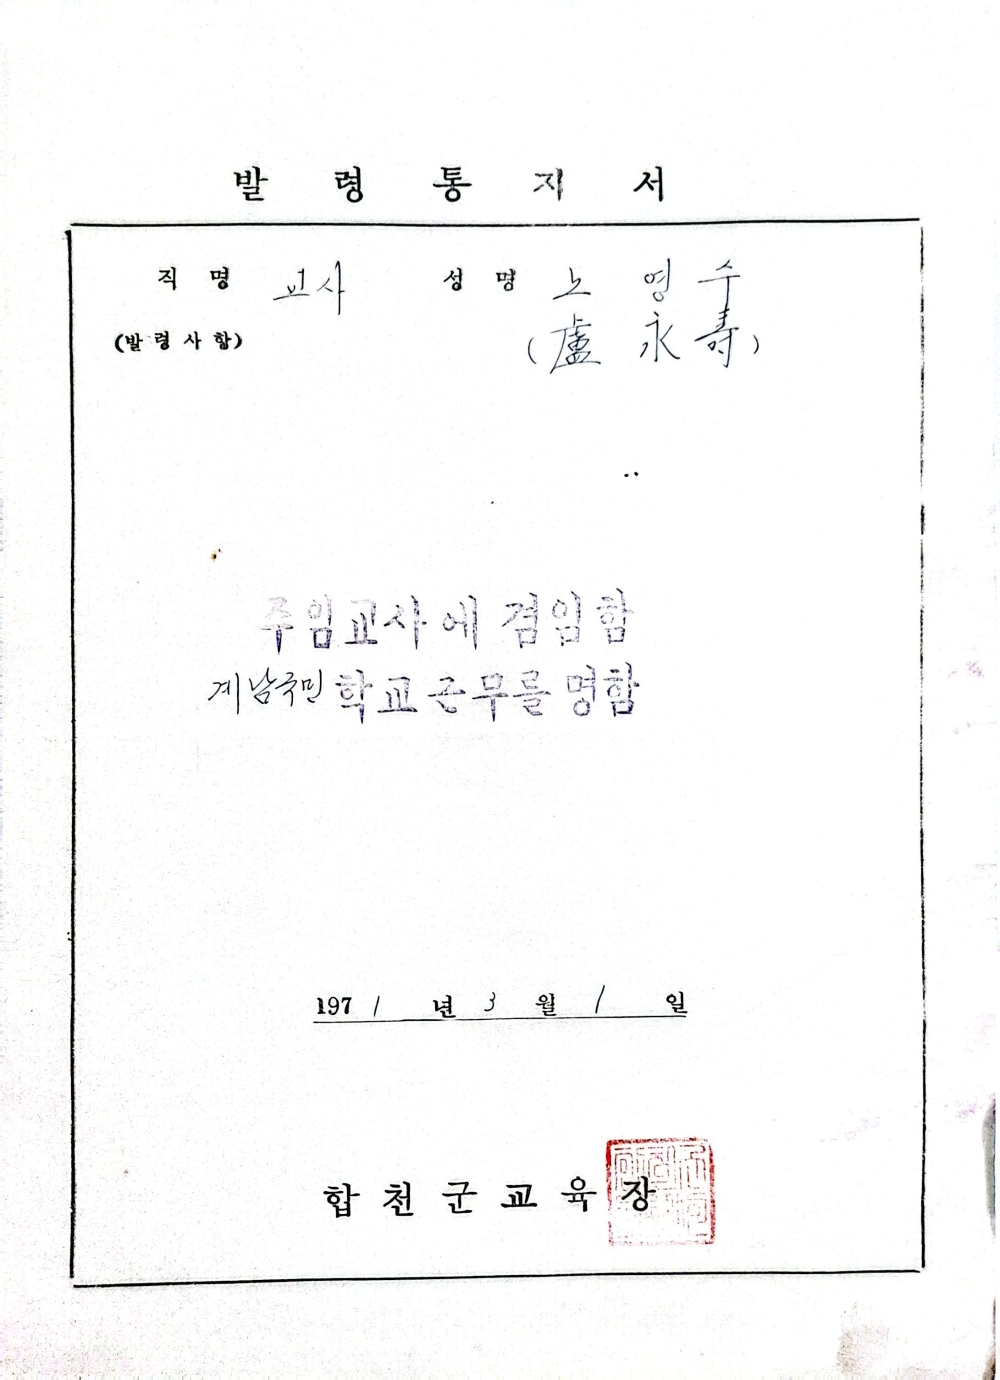 발령통지서
직명 교사 성명 노영수
(발령사항) (盧永壽)
주임교사에 겸임함
계남국민학교근무를 명함
1971년 3월 1일
합천군교육장